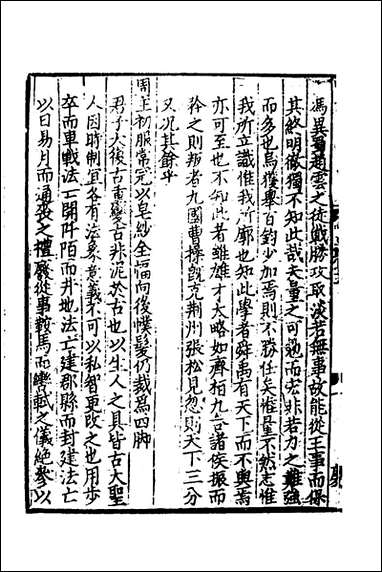 馮異蜀趙雲之徒戰勝攻取淡若無事故能從王事而保
其終明微獨不知此哉夫量之可勉而宏非若力之難強
而多也烏獲舉百鈞少加焉則不勝任矣惟量不然志惟
我所立識惟我所廓也知此學者舜禹有天下而不與焉
亦可至也不知此者雖雄才大略如齊桓九合諸侯振而
矜之則叛者九國曹操既克荆州張松見忽則天下三分
又况其餘乎
周主初服常冠以皂紗全幅向後幞髮仍裁爲四脚
君子大復古重變古非泥於古也以生人之具皆古大聖
人因時制宜各有法象意義不可以私智更改之也用步
卒而車戰法亡開阡陌而井地法亡建郡縣而封建法亡
以日易月而通丧之禮廢從事鞍馬而轡軾之儀絶參以